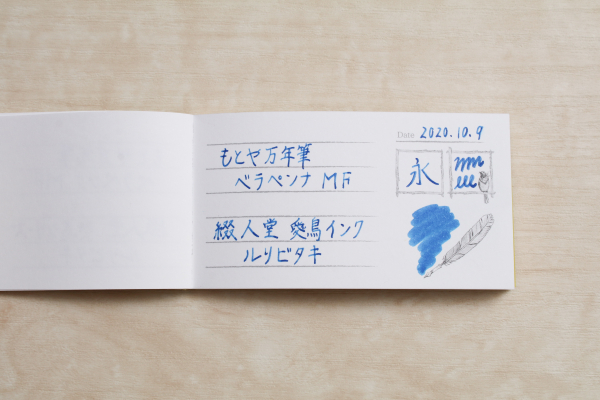 Date 2020.10.9
もとや万年筆
ベラペンナ MF
綴人堂 愛鳥インク
ルリビタキ
永